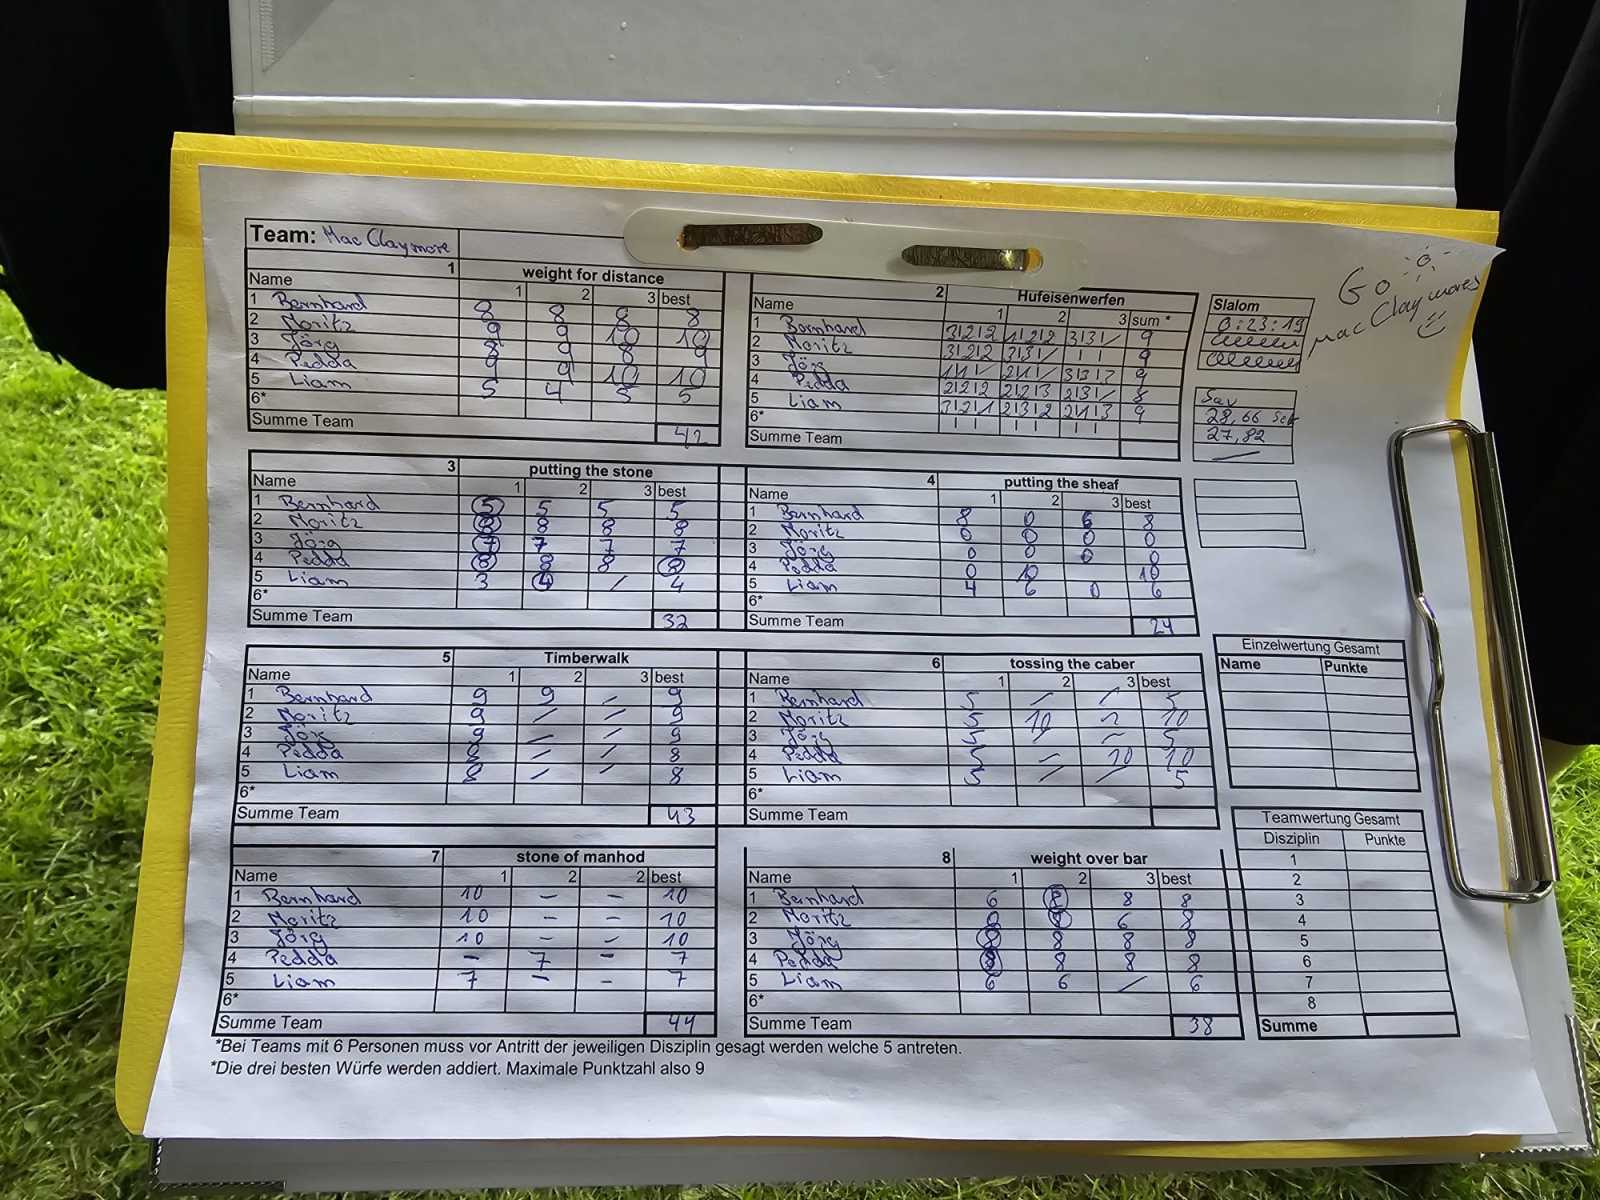 Team: Mac Claymore
1 weight for distance
Name 1 2 3 best
1 Bernhard 8 8 8 8
2 Moritz 9 9 10 10
3 Jörg 8 9 8 9
4 Pedda 9 9 10 10
5 Liam 5 4 5 5
6*
Summe Team 42
2 Hufeisenwerfen
Name 1 2 3 sum *
1 Bernhard 9
2 Moritz 9
3 Jörg 9
4 Pedda 8
5 Liam 9
6*
Summe Team
Slalom
0:23:19
Sav
28,66 Sek
27,82
Go
Mac Claymores
3 putting the stone
Name 1 2 3 best
1 Bernhard 5 5 5 5
2 Moritz 8 8 8 8
3 Jörg 7 7 7 7
4 Pedda 8 8 8 8
5 Liam 3 4 / 4
6*
Summe Team 32
4 putting the sheaf
Name 1 2 3 best
1 Bernhard 8 0 6 8
2 Moritz 0 0 0 0
3 Jörg 0 0 0 0
4 Pedda 0 10 10
5 Liam 4 6 0 6
6*
Summe Team 24
5 Timberwalk
Name 1 2 3 best
1 Bernhard 9 9 – 9
2 Moritz 9 – – 9
3 Jörg 9 – – 9
4 Pedda 8 – – 8
5 Liam 8 – – 8
6*
Summe Team 43
6 tossing the caber
Name 1 2 3 best
1 Bernhard 5 – – 5
2 Moritz 5 10 ~ 10
3 Jörg 5 – ~ 5
4 Pedda 5 – 10 10
5 Liam 5 / / 5
6*
Summe Team
Einzelwertung Gesamt
Name Punkte
7 stone of manhod
Name 1 2 2 best
1 Bernhard 10 – – 10
2 Moritz 10 – – 10
3 Jörg 10 – – 10
4 Pedda – 7 – 7
5 Liam 7 – – 7
6*
Summe Team 44
8 weight over bar
Name 1 2 3 best
1 Bernhard 6 8 8 8
2 Moritz 8 6 8
3 Jörg 8 8 8 8
4 Pedda 8 8 8 8
5 Liam 6 6 / 6
6*
Summe Team 38
Teamwertung Gesamt
Disziplin Punkte
1
2
3
4
5
6
7
8
Summe
*Bei Teams mit 6 Personen muss vor Antritt der jeweiligen Disziplin gesagt werden welche 5 antreten.
*Die drei besten Würfe werden addiert. Maximale Punktzahl also 9